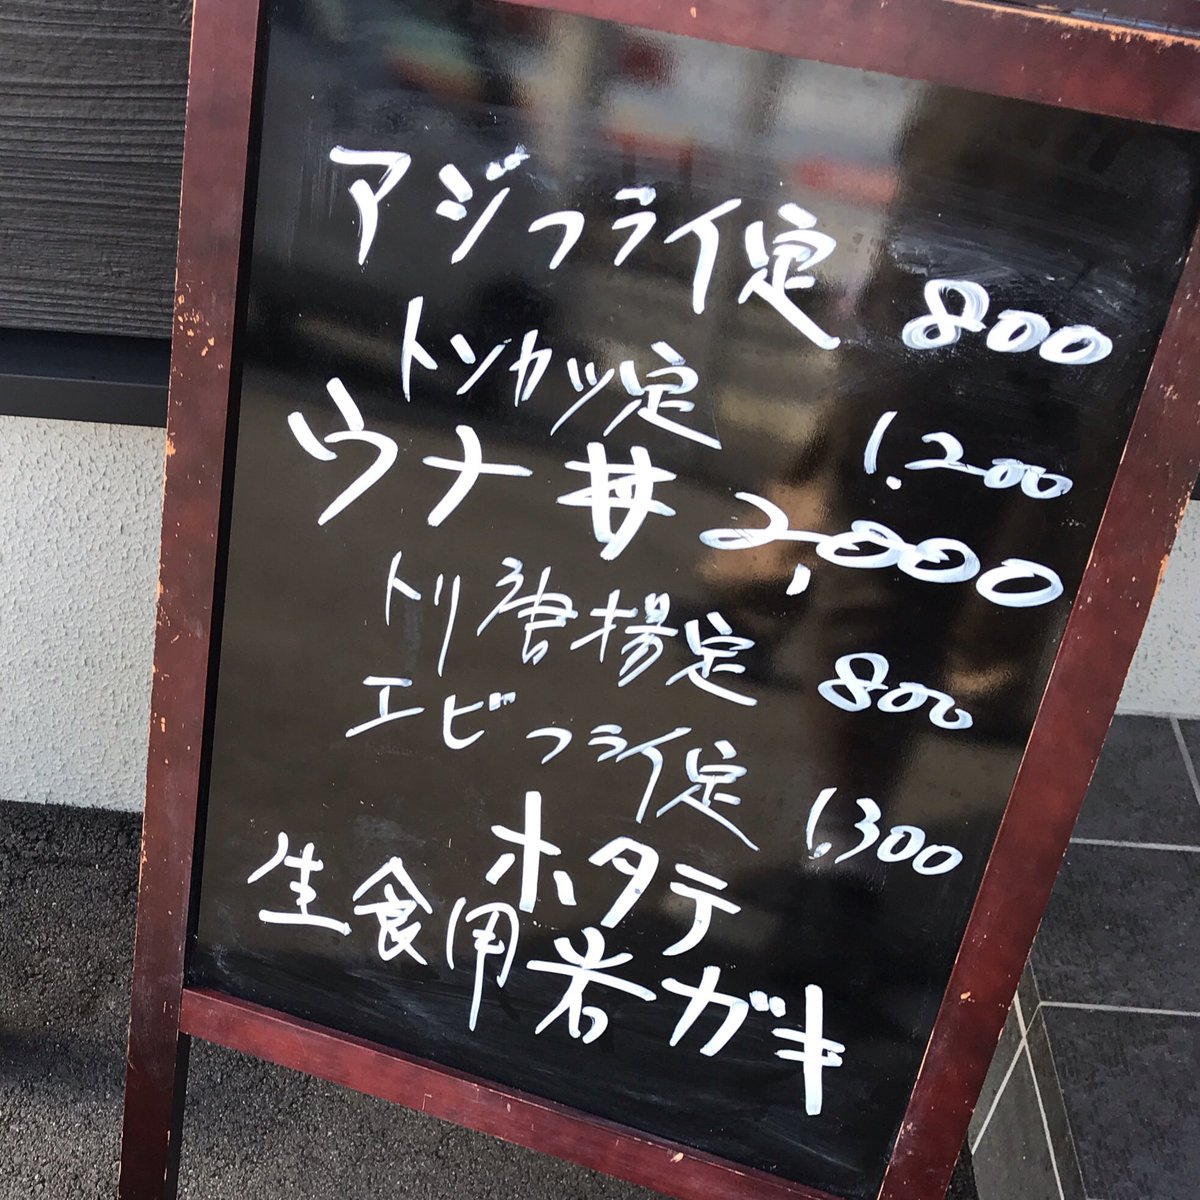 アジフライ定 800
トンカツ定 1,200
ウナ丼 2,000
トリ唐揚定 800
エビフライ定 1,300
ホタテ
生食用岩ガキ